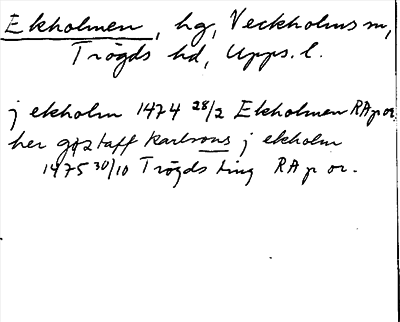 Ekholmen, hg, Veckholms sn,
Trögds hd, Upps. l.
j ekholm 1474 28/2 Ekholmen RAp or
her gøstaff karlsons j ekholm
1475 30/10 Trögds ting RA p or.